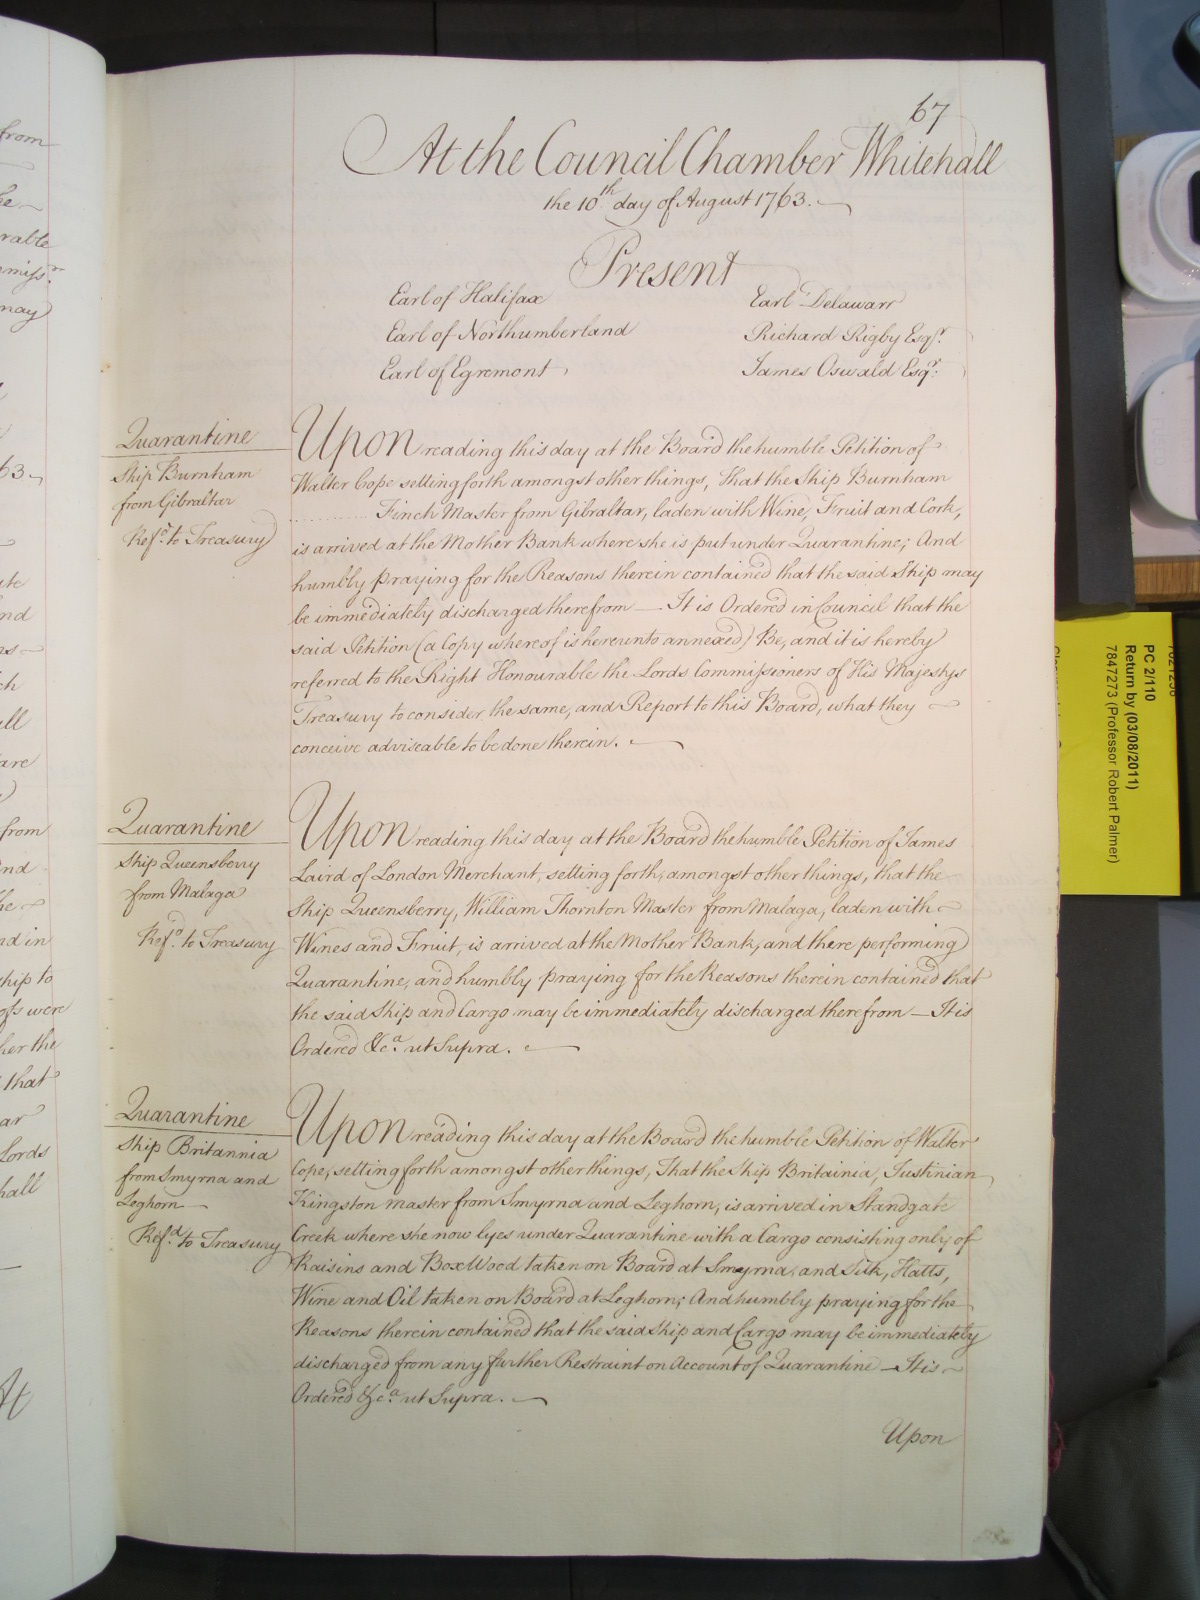 67
At the Council Chamber Whitehall
the 10th day of August 1763.
Present
Earl of Halifax
Earl of Northumberland
Earl of Egremont
Earl Delawarr
Richard Rigby Esqr.
James Oswald Esqr.
Quarantine
Ship Burnham
from Gibraltar
Refd. to Treasury
Upon reading this day at the Board the humble Petition of
Walter Cope setting forth amongst other things, That the Ship Burnham
............ Finch Master from Gibraltar, laden with Wine, Fruit and Cork,
is arrived at the Mother Bank where she is put under Quarantine; And
humbly praying for the Reasons therein contained that the said Ship may
be immediately discharged therefrom — It is Ordered in Council that the
said Petition (a Copy whereof is hereunto annexed) Be, and it is hereby
referred to the Right Honourable the Lords Commissioners of His Majestys
Treasury to consider the same, and Report to this Board, what they
conceive adviseable to be done therein.
Quarantine
Ship Queensberry
from Malaga
Refd. to Treasury
Upon reading this day at the Board the humble Petition of James
Laird of London Merchant, setting forth, amongst other things, that the
Ship Queensberry, William Thornton Master from Malaga, laden with
Wines and Fruit, is arrived at the Mother Bank, and there performing
Quarantine, and humbly praying for the Reasons therein contained that
the said Ship and Cargo may be immediately discharged therefrom — It is
Ordered &ca. ut Supra.
Quarantine
Ship Britannia
from Smyrna and
Leghorn
Refd. to Treasury
Upon reading this day at the Board the humble Petition of Walter
Cope, setting forth amongst other things, That the Ship Britainia, Justinian
Kingston master from Smyrna and Leghorn, is arrived in Standgate
Creek where she now lyes under Quarantine with a Cargo consisting only of
Raisins and Box Wood taken on Board at Smyrna, and Silk, Hatts,
Wine and Oil taken on Board at Leghorn; And humbly praying for the
Reasons therein contained that the said Ship and Cargo may be immediately
discharged from any further Restraint on Account of Quarantine — It is
Ordered &ca. ut Supra.
Upon
from
rable
may
63
nd
ch
all
are
from
and
ad in
ship to
were
her the
that
ar
Lords
hall
At
PC 2/110
Return by (03/08/2011)
7847273 (Professor Robert Palmer)